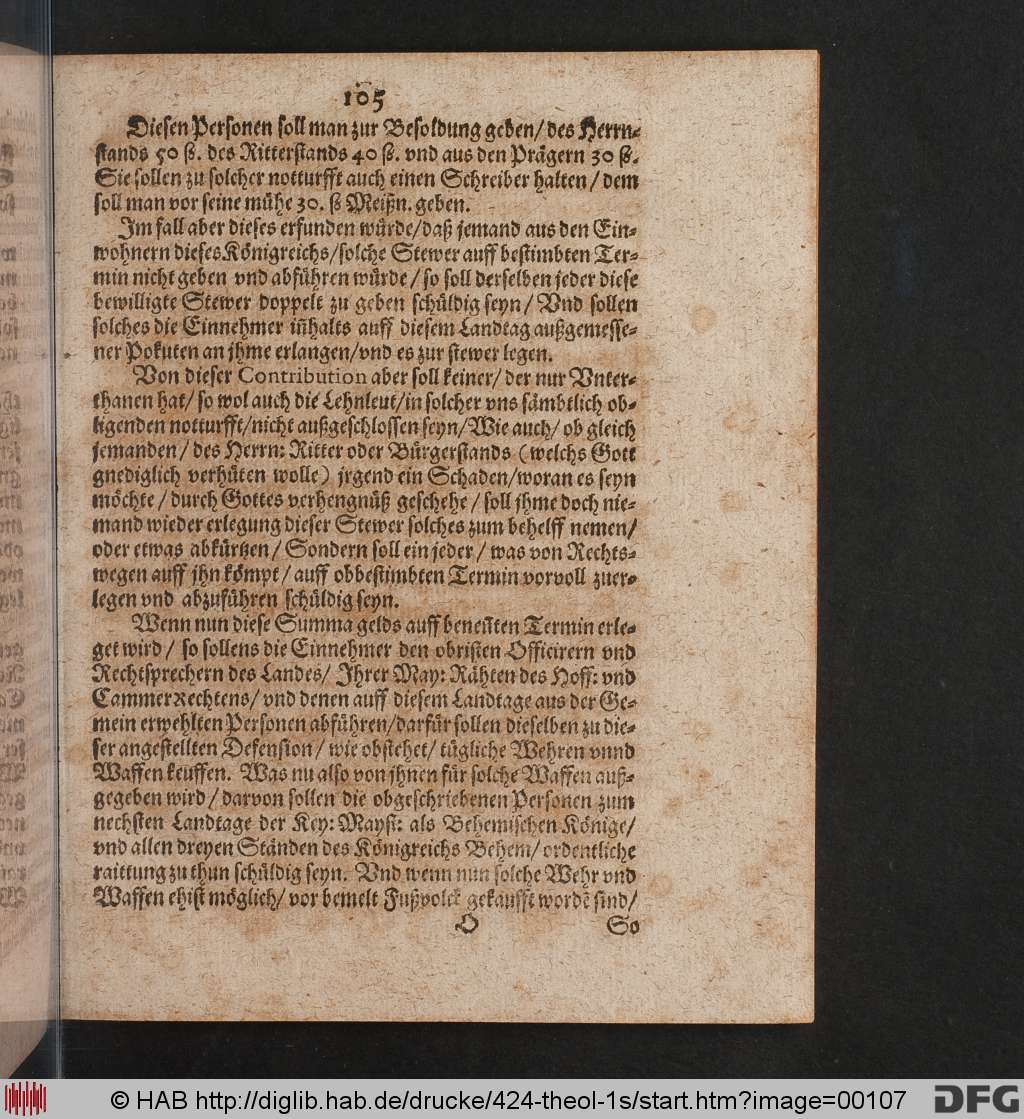 105
Diesen Personen soll man zur Besoldung geben/ des Herrn-
stands 50 ß. des Ritterstands 40 ß. vnd aus den Prägern 30 ß.
Sie sollen zu solcher notturfft auch einen Schreiber halten/ dem
soll man vor seine mühe 30. ß Meißn. geben.
Im fall aber dieses erfunden würde/ daß jemand aus den Ein-
wohnern dieses Königreichs/ solche Stewer auff bestimbten Ter-
min nicht geben vnd abführen würde/ so soll derselben jeder diese
bewilligte Stewer doppelt zu geben schüldig seyn/ Vnd sollen
solches die Einnehmer iñhalts auff diesem Landtag außgemesse-
ner Pokuten an jhme erlangen/ vnd es zur stewer legen.
Von dieser Contribution aber soll keiner/ der nur Vnter-
thanen hat/ so wol auch die Lehnleut/ in solcher vns sämbtlich ob-
ligenden notturfft/ nicht außgeschlossen seyn/ Wie auch/ ob gleich
jemanden/ des Herrn: Ritter oder Bürgerstands (welchs Gott
gnediglich verhüten wolle) jrgend ein Schaden/ woran es seyn
möchte/ durch Gottes verhengnüß geschehe/ soll jhme doch nie-
mand wieder erlegung dieser Stewer solches zum behelff nemen/
oder etwas abkürtzen/ Sondern soll ein jeder/ was von Rechts-
wegen auff jhn kömpt/ auff obbestimbten Termin vorvoll zuer-
legen vnd abzuführen schüldig seyn.
Wenn nun diese Summa gelds auff beneñten Termin erle-
get wird/ so sollens die Einnehmer den obristen Officirern vnd
Rechtsprechern des Landes/ Ihrer May: Rähten des Hoff: vnd
CammerRechtens/ vnd denen auff diesem Landtage aus der Ge-
mein erwehlten Personen abführen/ darfür sollen dieselben zu die-
ser angestellten Defension/ wie obstehet/ tügliche Wehren vnnd
Waffen keuffen. Was nu also von jhnen für solche Waffen auß-
gegeben wird/ darvon sollen die obgeschriebenen Personen zum
nechsten Landtage der Key: Mayst: als Behemischen Könige/
vnd allen dreyen Ständen des Königreichs Behem/ ordentliche
raittung zu thun schüldig seyn. Vnd wenn nun solche Wehr vnd
Waffen ehist möglich/ vor bemelt Fußvolck gekaufft wordẽ sind/
O So
© HAB http://diglib.hab.de/drucke/424-theol-1s/start.htm?image=00107
DFG